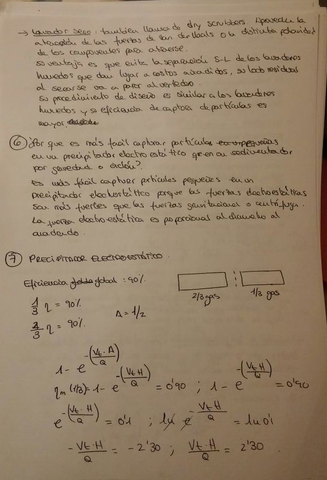 → Lavador seco: también llamados dry scrubbers. Aprovecha la
atracción de las fuerzas de Van der Waals o la distinta polaridad
de los componentes para atraerse.
Su ventaja es que evita la separación S-L de los lavadores
húmedos que dan lugar a costos añadidos, su lodo residual
al secarse va a parar al vertedero
Su procedimiento de diseño es similar a los lavadores
húmedos y su eficiencia de captura de partículas es
mayor
⑥ ¿Por qué es más fácil capturar partículas pequeñas
en un precipitador electrostático que en un sedimentador
por gravedad o ciclón?
Es más fácil capturar partículas pequeñas en un
precipitador electrostático porque las fuerzas electrostáticas
son más fuertes que las fuerzas gravitacional o centrífuga.
La fuerza electrostática es proporcional al diámetro al
cuadrado
⑦ PRECIPITADOR ELECTROSTÁTICO.
Eficiencia global: 90%
2/3 gas 1/3 gas
1/3 η = 90%
2/3 η = 90% A = 1/2
1 - e^-(Vt·A/Q)
ηm (1/3) = 1 - e^-(Vt·H/Q) = 0'90 ; 1 - e^-(Vt·H/Q) = 0'90
e^-(Vt·H/Q) = 0'1 ; ln e^-Vt·H/Q = ln 0'1
-Vt·H/Q = -2'30 ; Vt·H/Q = 2'30